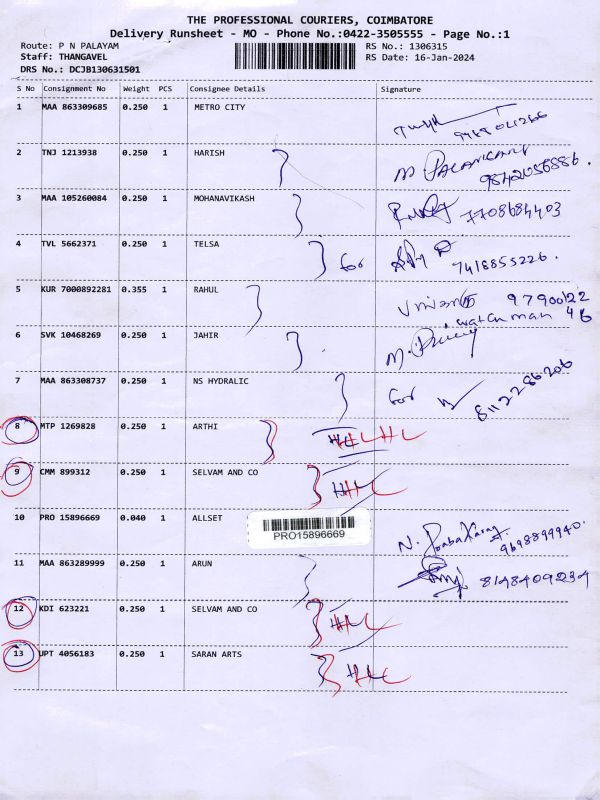 THE PROFESSIONAL COURIERS, COIMBATORE
Delivery Runsheet - MO - Phone No.:0422-3505555 - Page No.:1
Route: P N PALAYAM RS No.: 1306315
Staff: THANGAVEL RS Date: 16-Jan-2024
DRS No.: DCJB130631501
S No Consignment No Weight PCS Consignee Details Signature
1 MAA 863309685 0.250 1 METRO CITY
2 TNJ 1213938 0.250 1 HARISH
9842056886.
3 MAA 105260084 0.250 1 MOHANAVIKASH 7708684403
4 TVL 5662371 0.250 1 TELSA for
7418855226.
5 KUR 7000892281 0.355 1 RAHUL 9790022
watchman 46
6 SVK 10468269 0.250 1 JAHIR
7 MAA 863308737 0.250 1 NS HYDRALIC for 8112286206
8 MTP 1269828 0.250 1 ARTHI
9 CMM 899312 0.250 1 SELVAM AND CO
10 PRO 15896669 0.040 1 ALLSET
PRO15896669
9698899940.
11 MAA 863289999 0.250 1 ARUN 8148409234
12 KDI 623221 0.250 1 SELVAM AND CO
13 UPT 4056183 0.250 1 SARAN ARTS